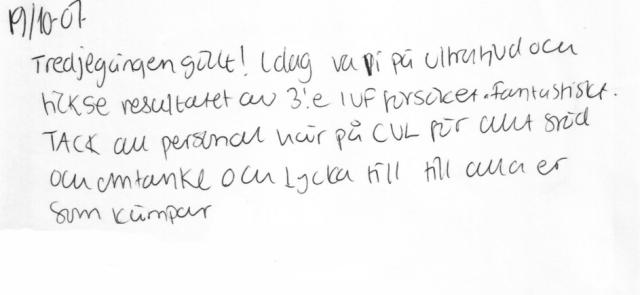 19/10-07.
Tredjegången gillt! Idag va vi på ultraljud och
fick se resultatet av 3:e IVF försöket. Fantastiskt.
TACK all personal här på CUL för allt stöd
och omtanke och Lycka till till alla er
som kämpar